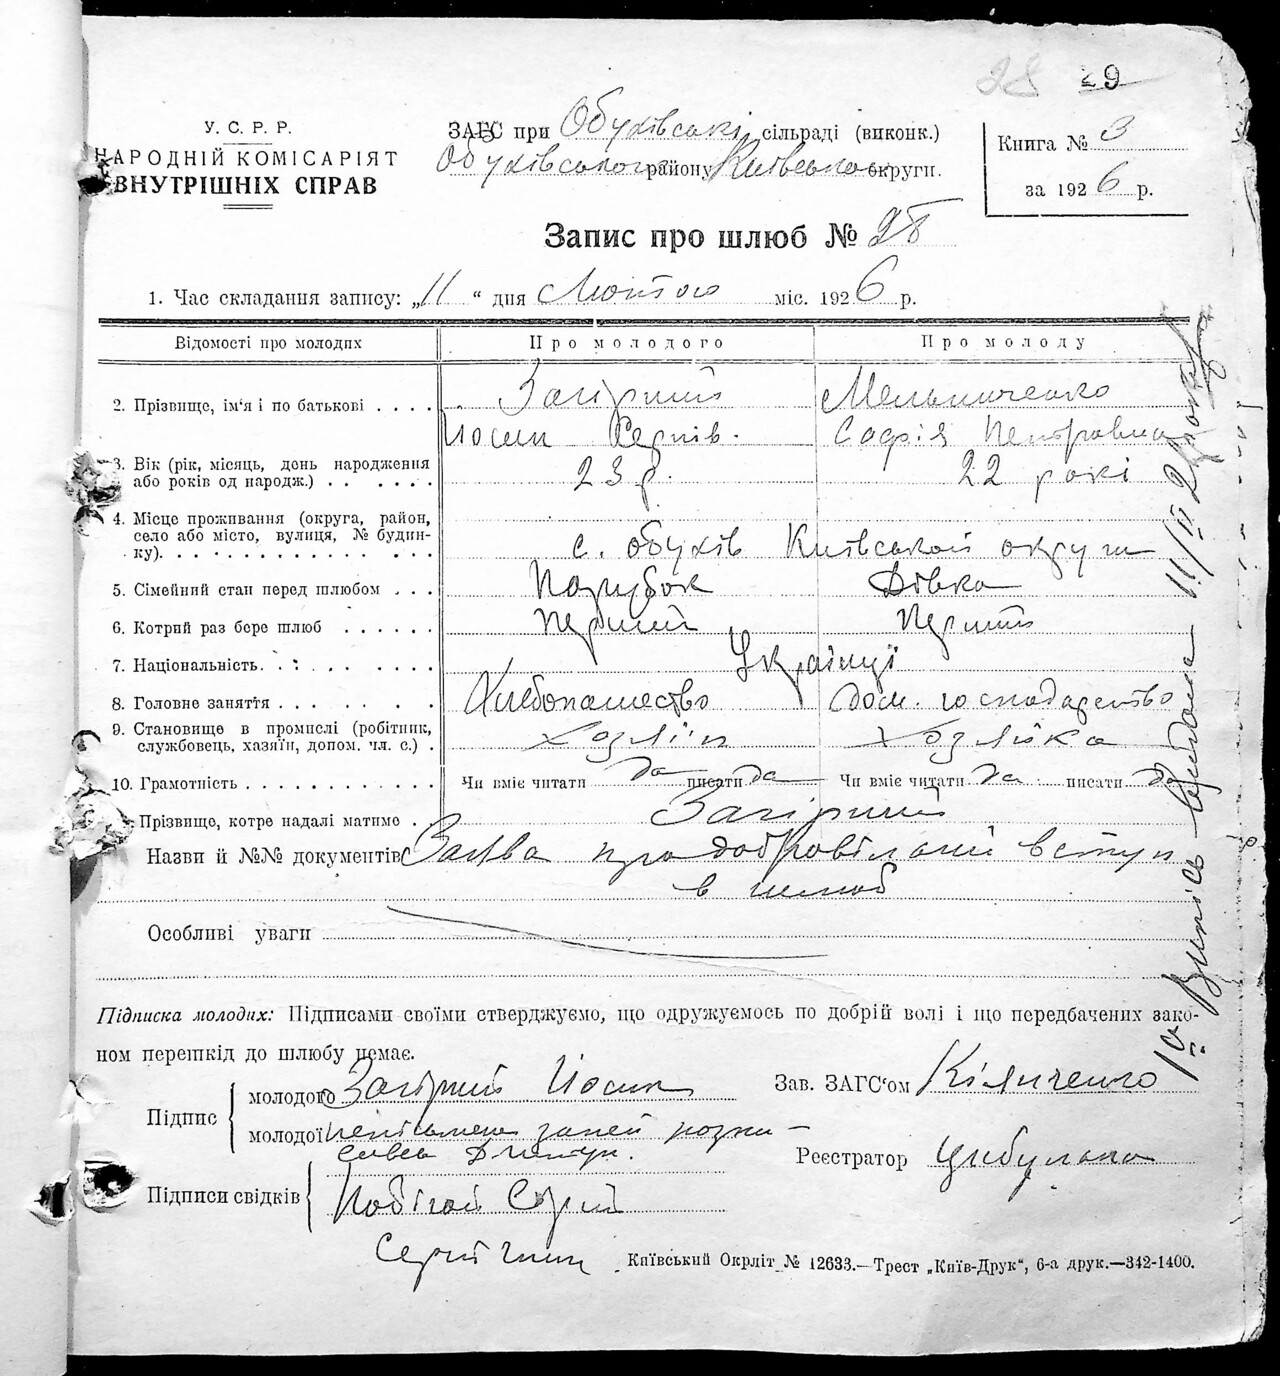 29
У. С. Р. Р.
НАРОДНІЙ КОМІСАРІЯТ
ВНУТРІШНІХ СПРАВ
ЗАГС при Обухівські сільраді (виконк.)
Обухівського району Київської округи.
Книга № 3
за 1926 р.
Запис про шлюб № 28
1. Час складання запису: „11“ дня Лютого міс. 1926 р.
Відомості про молодих Про молодого Про молоду
2. Прізвище, ім'я і по батькові . . . . Загірний Мельниченко
Йосип Софія Петровна
3. Вік (рік, місяць, день народження
або років од народж.) . . . . . . 23 р. 22 рокі
4. Місце проживання (округа, район,
село або місто, вулиця, № будин-
ку). . . . . . . . . . . . с. Обухів Київської округи
5. Сімейний стан перед шлюбом . . . Парубок Дівка
6. Котрий раз бере шлюб . . . . . . Перший Перший
7. Національність. . . . . . . . . Українці
8. Головне заняття . . . . . . . Хлебопашество Дом. господарство
9. Становище в промислі (робітник,
службовець, хазяїн, допом. чл. с.) . Хозяїн Хозяйка
10. Грамотність . . . . . . . . . . . . Чи вміє читати да писати да Чи вміє читати да писати да
Прізвище, котре надалі матиме . Загірний
Назви й №№ документів Заява про добровільний вступ
в шлюб
Особливі уваги
Підписка молодих: Підписами своїми стверджуємо, що одружуємось по добрій волі і що передбачених зако-
ном перешкід до шлюбу немає.
Підпис
молодого Загірний Йосип
молодої
Зав. ЗАГС'ом Кіяниченко
Реєстратор Цибулько
Підписи свідків
Київський Окрліт № 12633.—Трест „Київ-Друк“, 6-а друк.—342-1400.
Випись 11/II 26